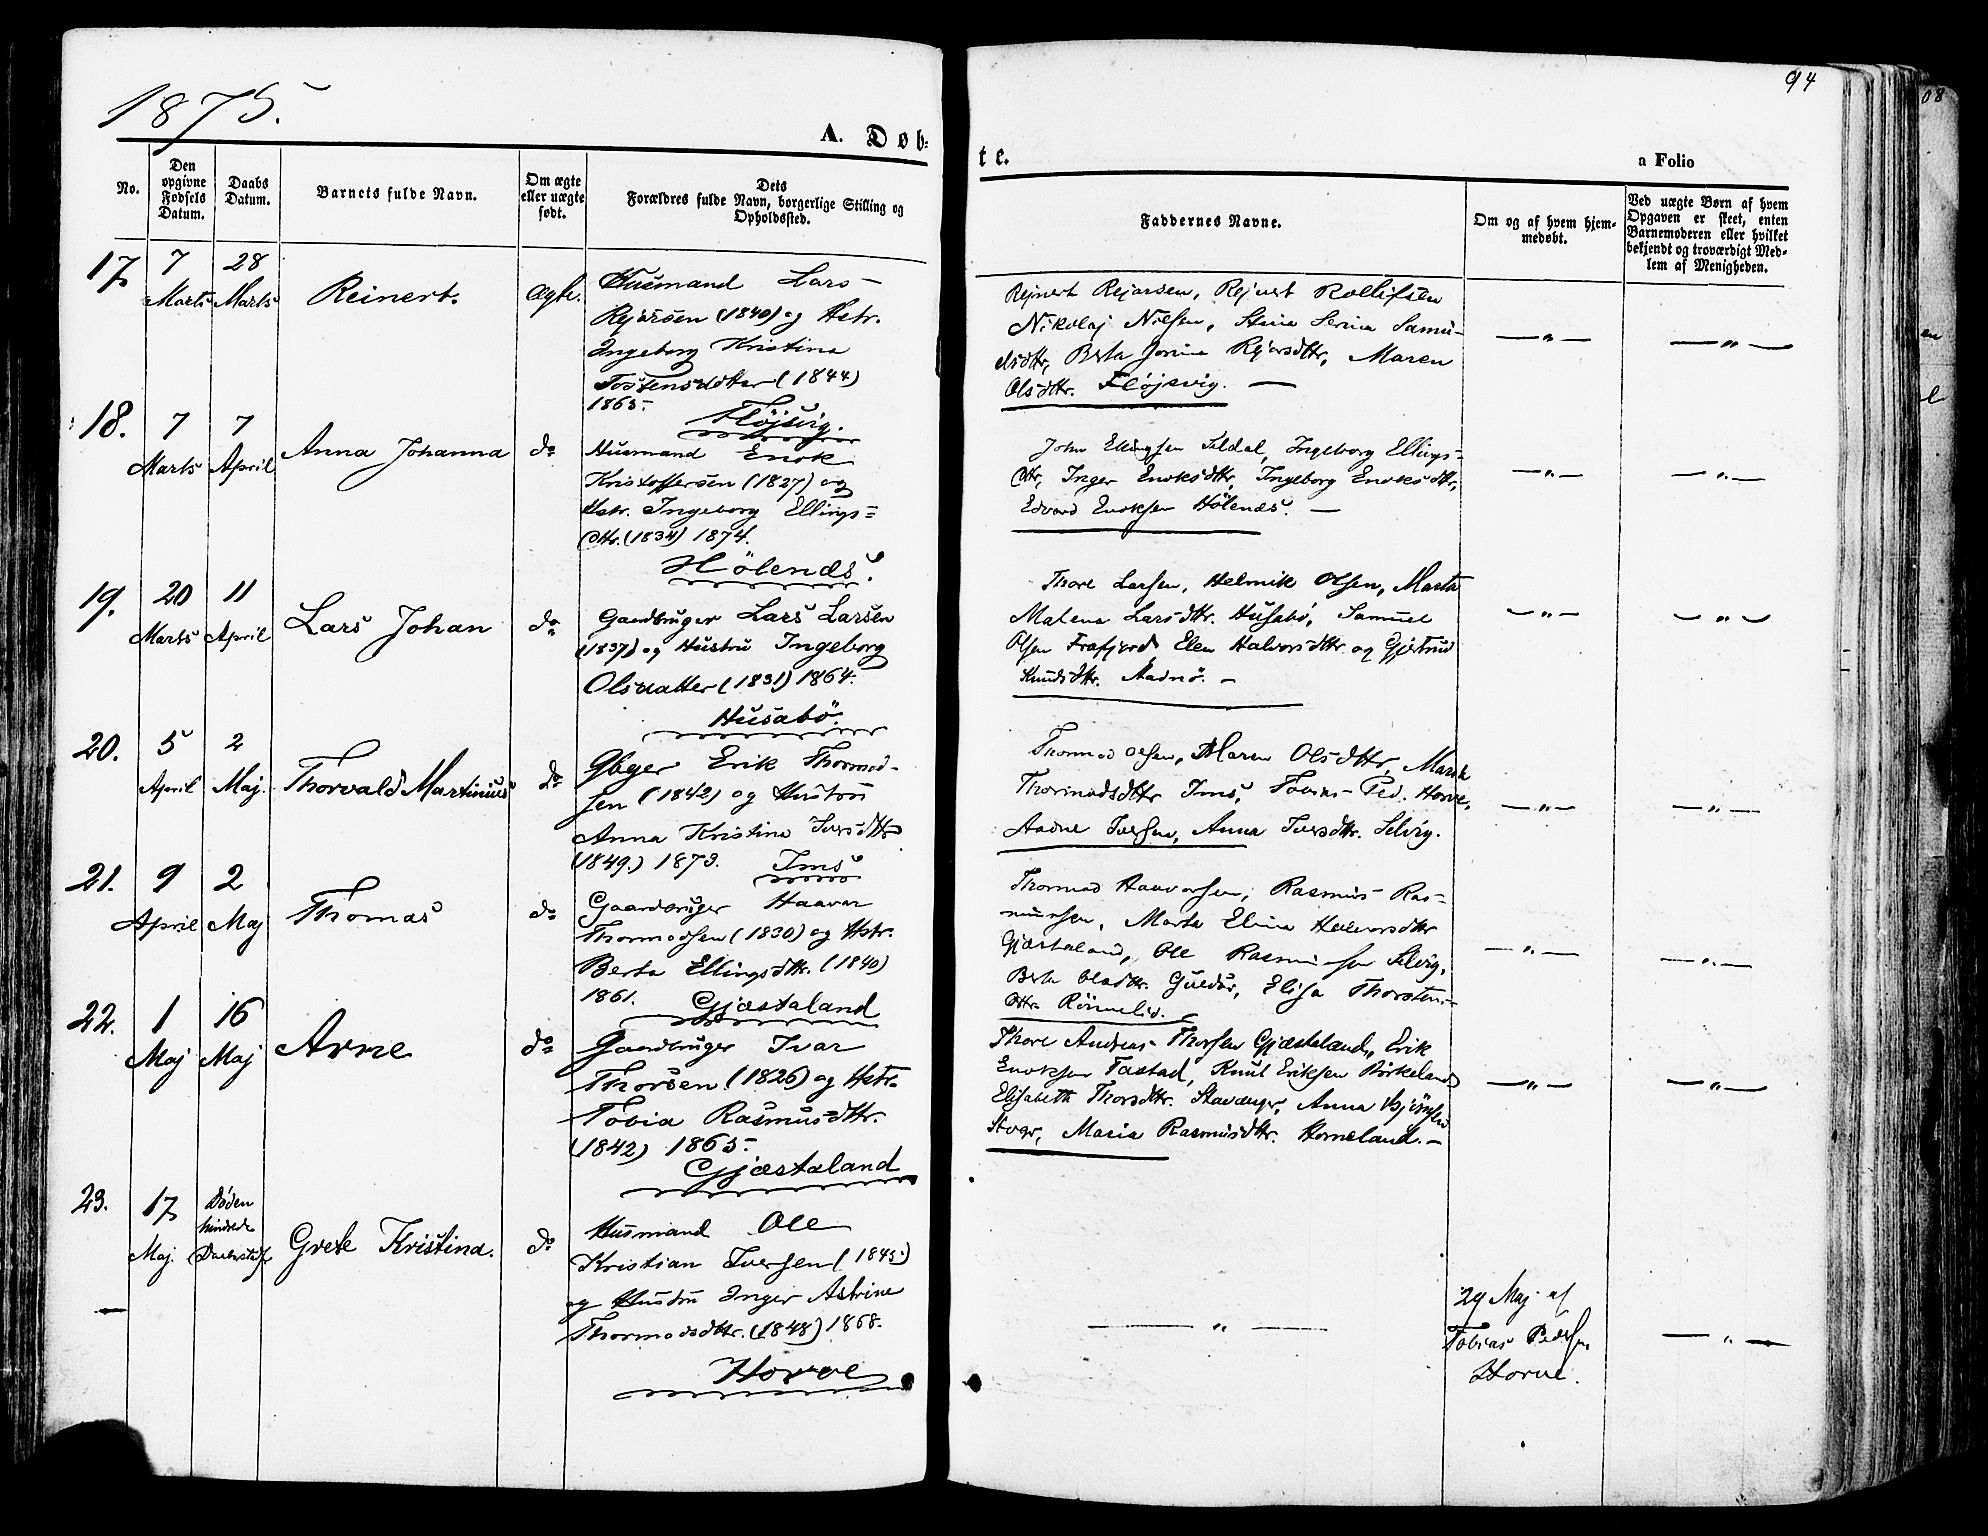 1875.
94
08
A. Døb-
te.
a Folio
No.
Den opgivne Fødsels Datum.
Daabs Datum.
Barnets fulde Navn.
Om ægte eller uægte født.
Dets Forældres fulde Navn, borgerlige Stilling og Opholdssted.
Faddernes Navne.
Om og af hvem hjemmedøbt.
Ved uægte Børn af hvem Opgaven er skeet, enten Barnemoderen eller hvilket bekjendt og troværdigt Medlem af Menigheden.
17 7 28
Marts Marts Reinert. Ægte.
Husmand Lars
Rejersen (1840) og Hstr.
Ingeborg Kristina
Tostensdatter (1844)
1865. Fløjsvig.
Rejnert Rejersen, Rejnert Rollifsen
Nikolaj Nilsen, Stine Serina Samu-
elsdttr, Berta Jorina Rejersdttr, Maren
Olsdttr. Fløjsvig. —
— " — — " —
18. 7 7
Marts April Anna Johanna do
Husmand Enok
Kristoffersen (1827) og
Hstr. Ingeborg Ellings-
dttr. (1834) 1874.
Hölenæs.
John Ellingsen Seldal, Ingeborg Ellings-
dttr, Inger Enoksdttr, Ingeborg Enoksdttr,
Edvard Enoksen Hölenæs. —
— " — — " —
19. 20 11
Marts April Lars Johan do
Gaardbruger Lars Larsen
(1837) og Hustru Ingeborg
Olsdatter (1831) 1864.
Husabö.
Thore Larsen, Helmik Olsen, Marta
Malena Larsdttr. Husabö, Samuel
Olsen Frafjord Elen Halvorsdttr. og Gjertrud
Knudsdttr. Aadnö. —
— " — — " —
20. 5 2
April Maj. Thorvald Martinius do
Gbger Erik Thormod-
sen (1842) og Hustru
Anna Kristine Iversdttr
(1849.) 1873. Ims
Thormod Olsen, Maren Olsdttr, Marta
Thormodsdttr Ims, Tobias Ped. Horve,
Aadne Iversen, Anna Iversdttr. Selvig.
— " — — " —
21. 9 2
April Maj Thomas do
Gaardbruger Haavar
Thormodsen (1830) og Hstr.
Berta Ellingsdttr. (1840)
1861. Gjæstaland
Thormod Haavorsen, Rasmus Ras-
mussen, Marta Elina Halvorsdttr
Gjæstaland, Ole Rasmussen Selvig,
Berta Olsdttr. Elisa Thorsten-
dttr Rönnelid.
— " — — " —
22. 1 16
Maj Maj Arne do
Gaardbruger Ivar
Thorsen (1826) og Hstr.
Tobia Rasmusdttr.
(1842) 1865.
Gjæstaland
Thore Andreas Thorsen Gjæsteland, Erik
Enoksen Tastad, Knut Eriksen Birkeland
Elisabeth Thorsdttr. Stavanger, Anna
Stvgr, Maria Rasmusdttr. Horneland. —
— " — — " —
23. 17 Døden
Maj. hindrede Grete Kristina. do
Husmand Ole
Kristian Iversen (1845)
og Hustru Inger Astrine
Thormodsdttr. (1848) 1868.
Horve
— " —
29 Maj af
Tobias Pedersen
Horve.
— " —